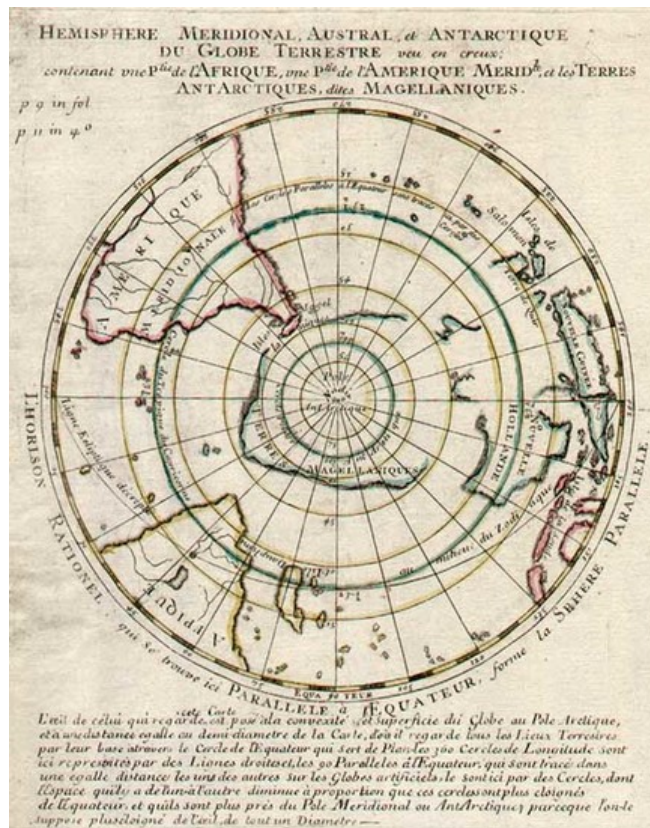 HEMISPHERE MERIDIONAL, AUSTRAL, et ANTARCTIQUE
DU GLOBE TERRESTRE veu en creux;
contenant une Ptie de l'AFRIQUE, une Ptie de l'AMERIQUE MERIDle, et les TERRES
ANTARCTIQUES, dites MAGELLANIQUES.
p 9 in fol
p 11 in 4o
AMERIQUE
MERIDIONALE
Les Cercles Paralleles à l'Equateur sont tracez
Isles de
Salomon
Terre de Quir
NOUVELLE GUINEE
NOUVELLE
HOLLANDE
Pole
AntArctique
TERRE
MAGELLANIQUES
Cercle du Tropique du Capricorne
Ligne Ecliptique décripte
ou milieu du Zodiaque
AFRIQUE
EQUATEUR
L'HORISON RATIONEL, qui se trouve ici PARALLELE à l'EQUATEUR, forme la SPHERE PARALLELE
cete Carte
L'œil de célui qui regarde, est posé à la convexité et superficie du Globe au Pole Arctique,
et à une distance egalle au demi-diametre de la Carte, d'où il regarde tous les Lieux Terrestres
par leur base à travers le Cercle de l'Equateur qui sert de Plan. les 360 Cercles de Longitude sont
ici representés par des Lignes droites et, les 90 Paralleles à l'Equateur, qui sont tracé dans
une egalle distance les uns des autres sur les Globes artificiels, le sont ici par des Cercles, dont
l'Espace qu'il y a de l'un à l'autre diminue à proportion que ces cercles sont plus eloignés
de l'Equateur, et qu'ils sont plus près du Pole Meridional ou AntArctique; parceque l'on le
suppose plus éloigné de l'œil, de tout un Diametre